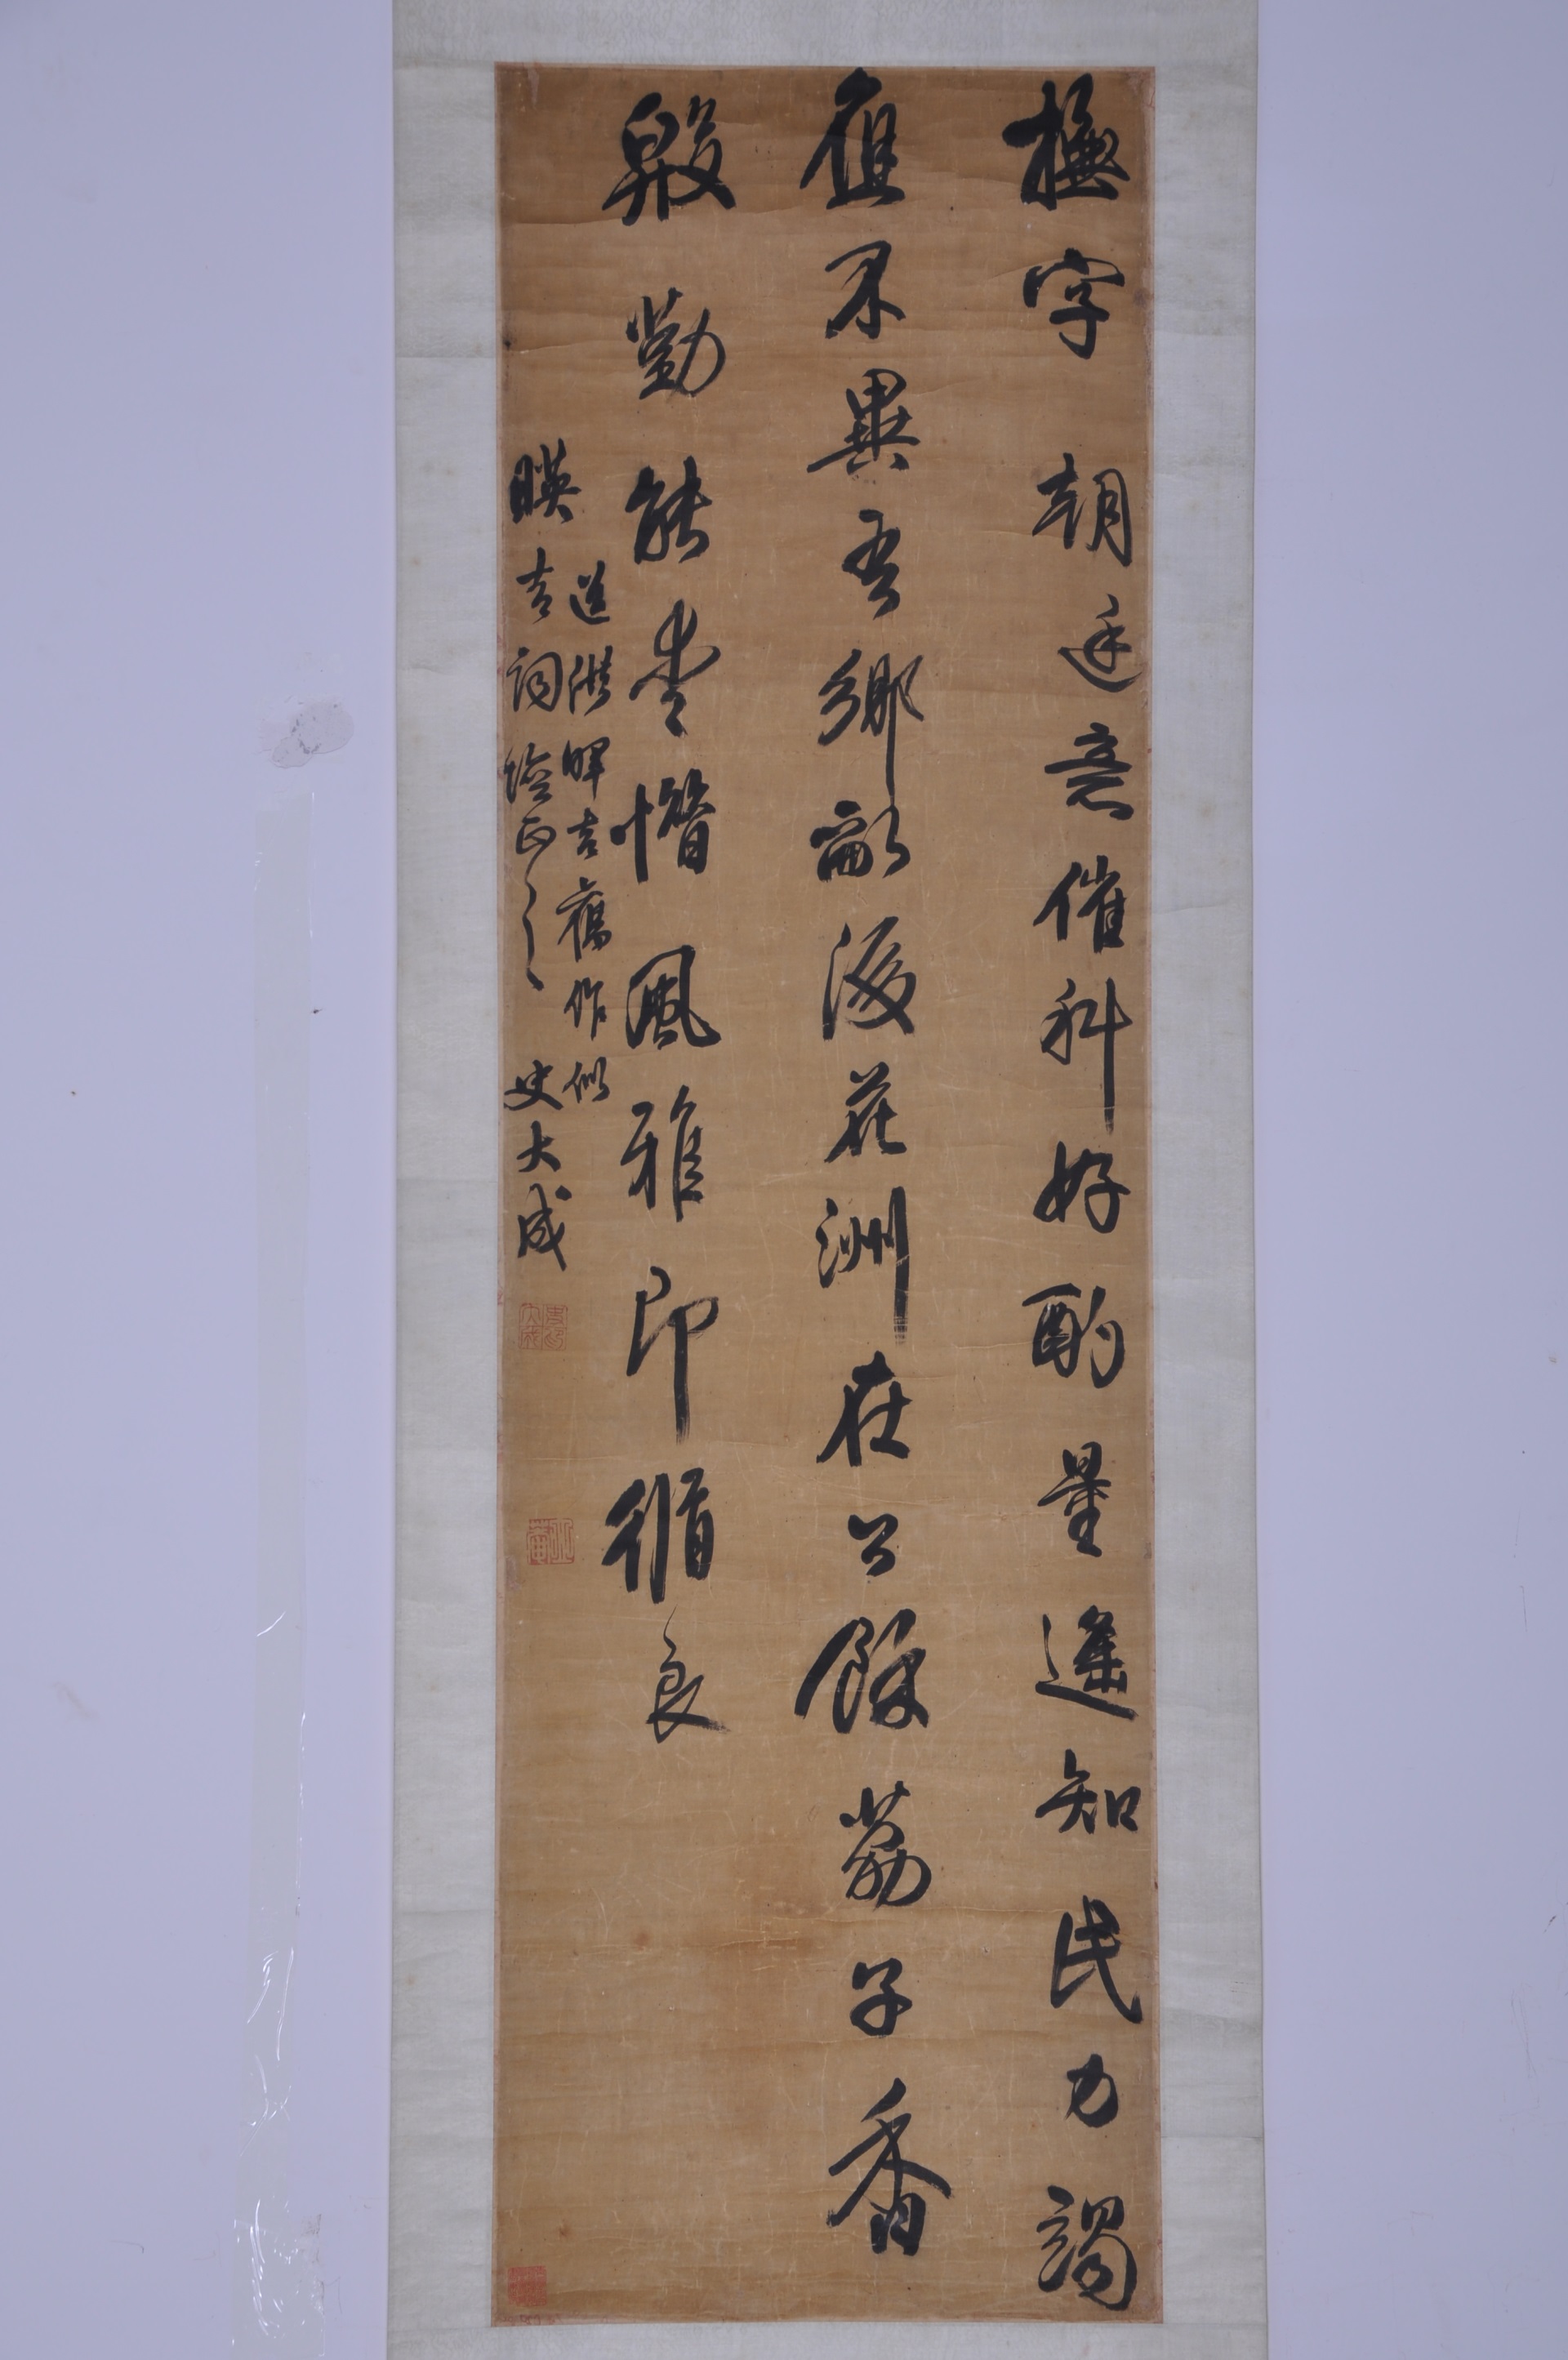 撫字朝廷意催科好酌量遙知民力竭
應不異吾鄉後花洲在公餘荔子香
殷勤能愛惜風雅即循良
送洪暉吉舊作似
暎吉詞壇正之 史大成